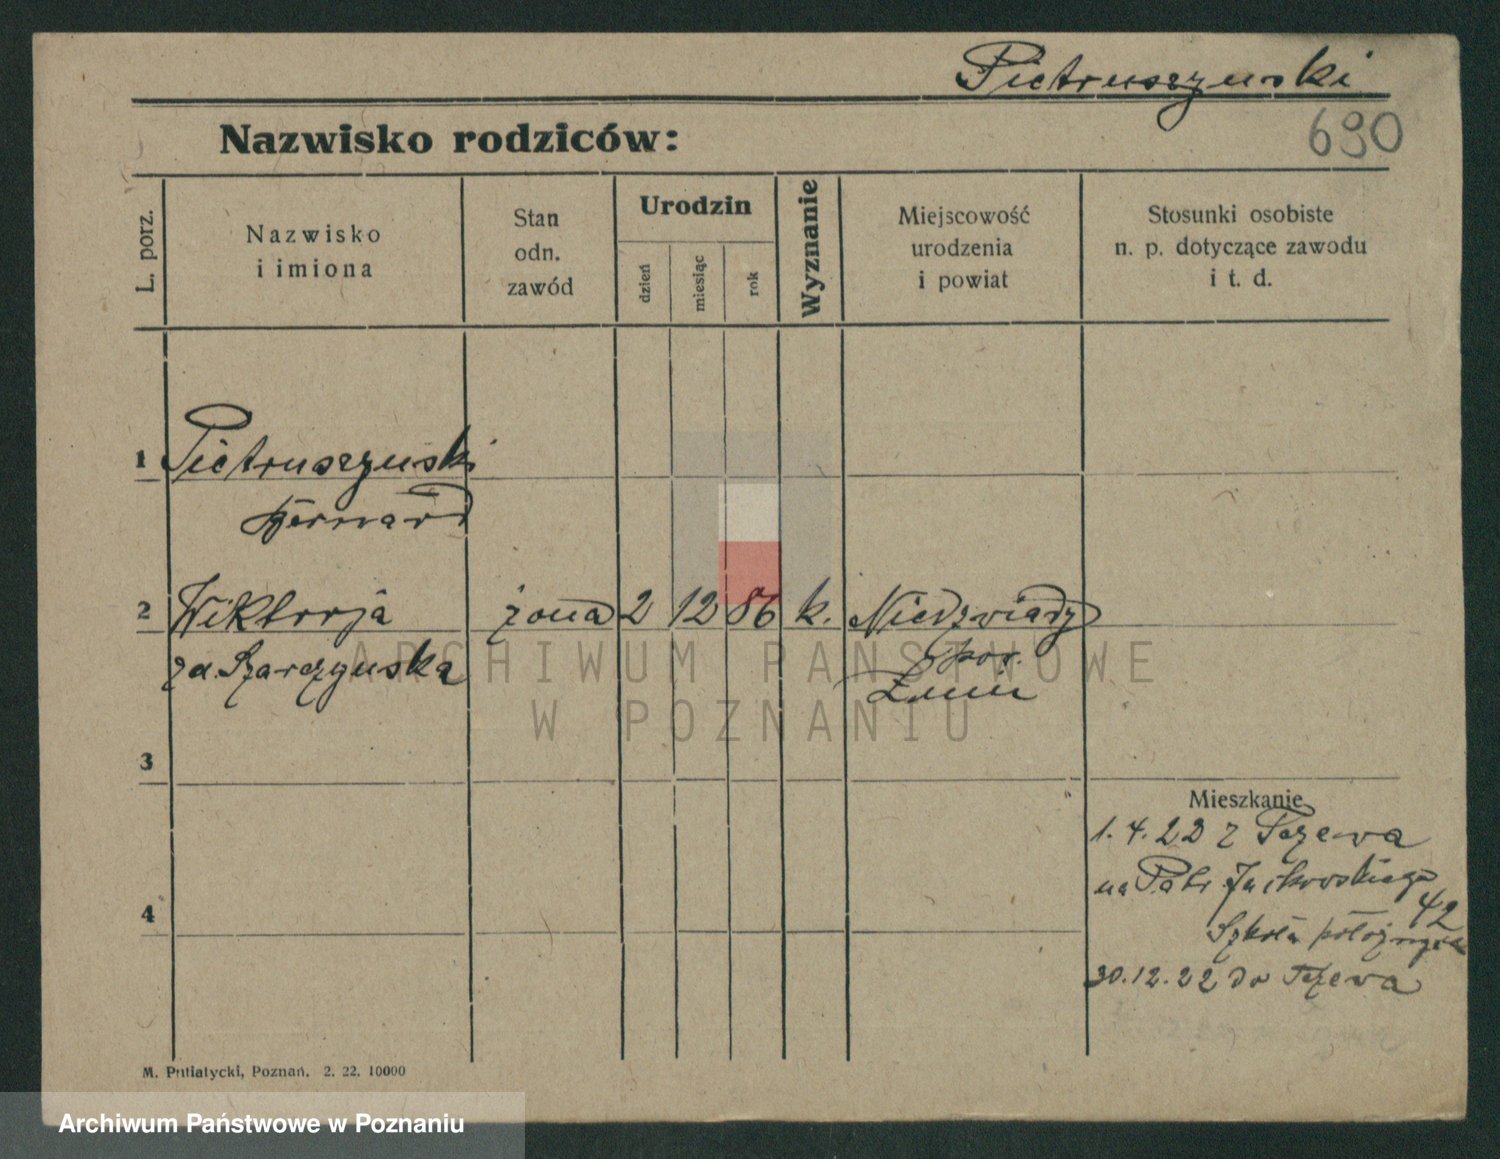 Pietruszynski
690
Nazwisko rodziców:
L. porz.
Nazwisko
i imiona
Stan
odn.
zawód
Urodzin
dzień
miesiąc
rok
Wyznanie
Miejscowość
urodzenia
i powiat
Stosunki osobiste
n. p. dotyczące zawodu
i t. d.
1 Pietruszynski
Bernard
2 Wiktorja żona 2 12 86 k. Niedzwiady
zd. Szarczynska pow.
Znin
3
Mieszkanie
1.4.22 z Tczewa
na Patr Jackowskiego
42
4
Szkoła położnych
30.12.22 do Tczewa
M. Putiatycki, Poznań. 2. 22. 10000
ARCHIWUM PAŃSTWOWE
W POZNANIU
Archiwum Państwowe w Poznaniu